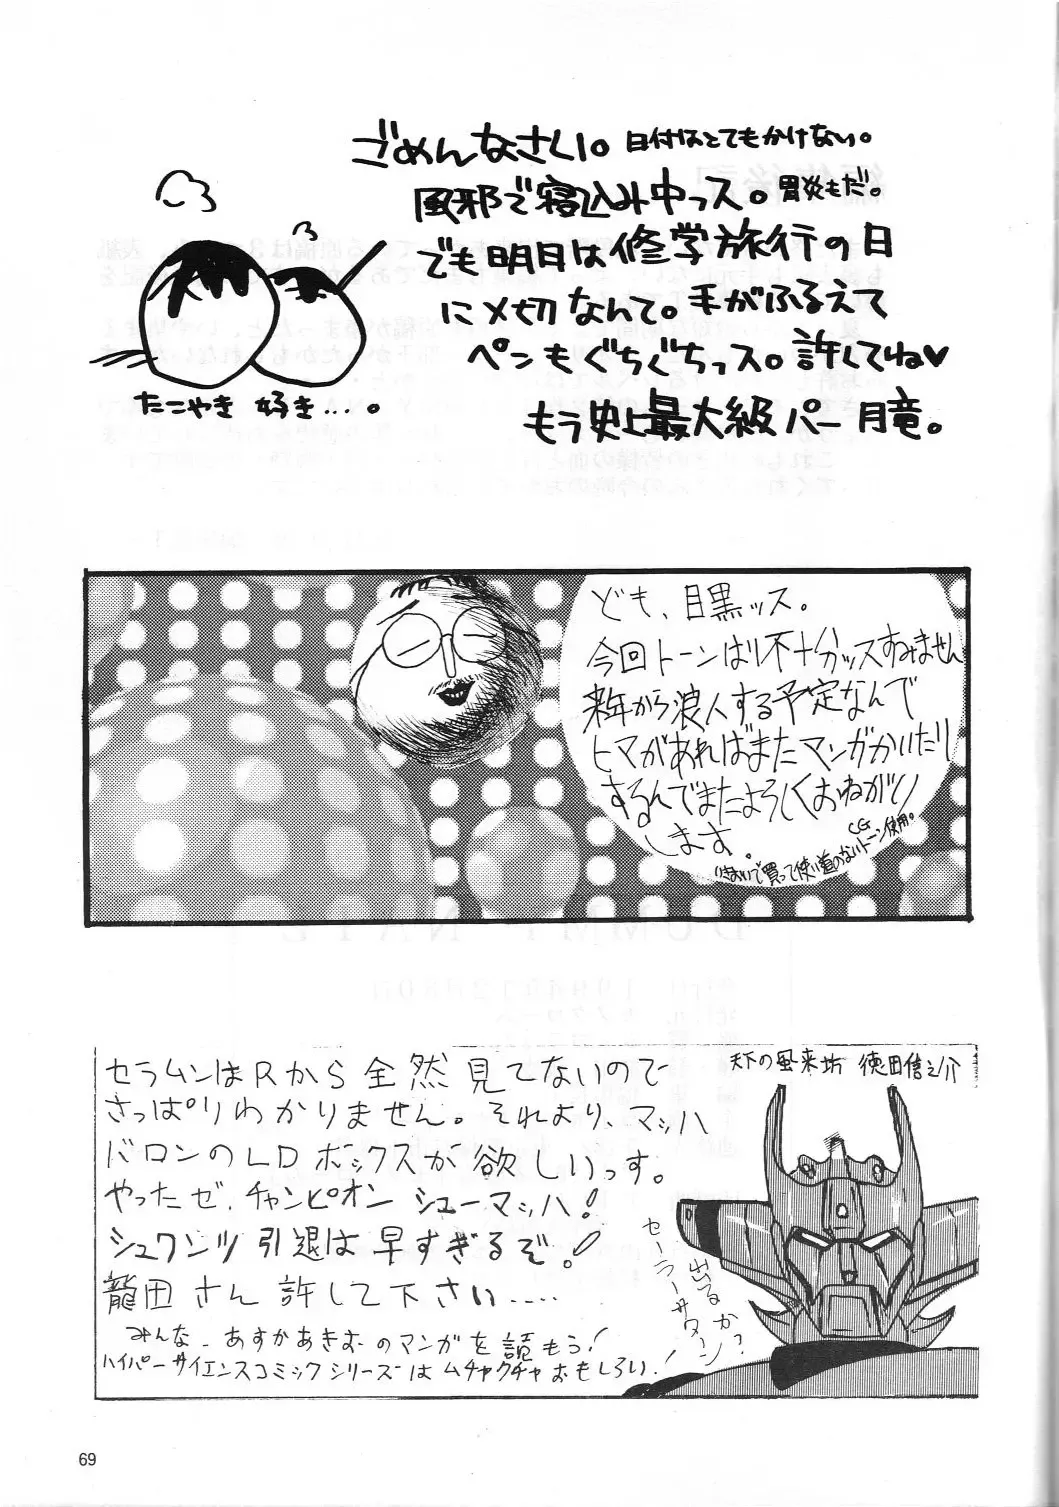 ごめんなさい。日付はとてもかけない。
風邪で寝込み中っス。胃炎もだ。
でも明日は修学旅行の日
に〆切なんて。手がふるえて
ペンもぐちぐちっス。許してね♥
もう史上最大級パー 月竜。
たこやき 好き…。
ども、目黒ッス。
今回トーンはり不十分ッスすみません
来年から浪人する予定なんで
ヒマがあればまたマンガかいたり
するんでまたよろしくおねがい
します。
いきおいで買って使い道のないCGトーン使用。
セラムンはRから全然見てないので
さっぱりわかりません。それより、マッハ
バロンのLDボックスが欲しいっす。
やったゼ、チャンピオン シューマッハ!
シュワンツ引退は早すぎるぞ。!
龍田さん許して下さい……
みんな、あすかあきおのマンガを読もう!
ハイパーサイエンスコミックシリーズはムチャクチャおもしろい!
天下の風来坊 徳田信之介
出るか?
セーラーサターン!
69